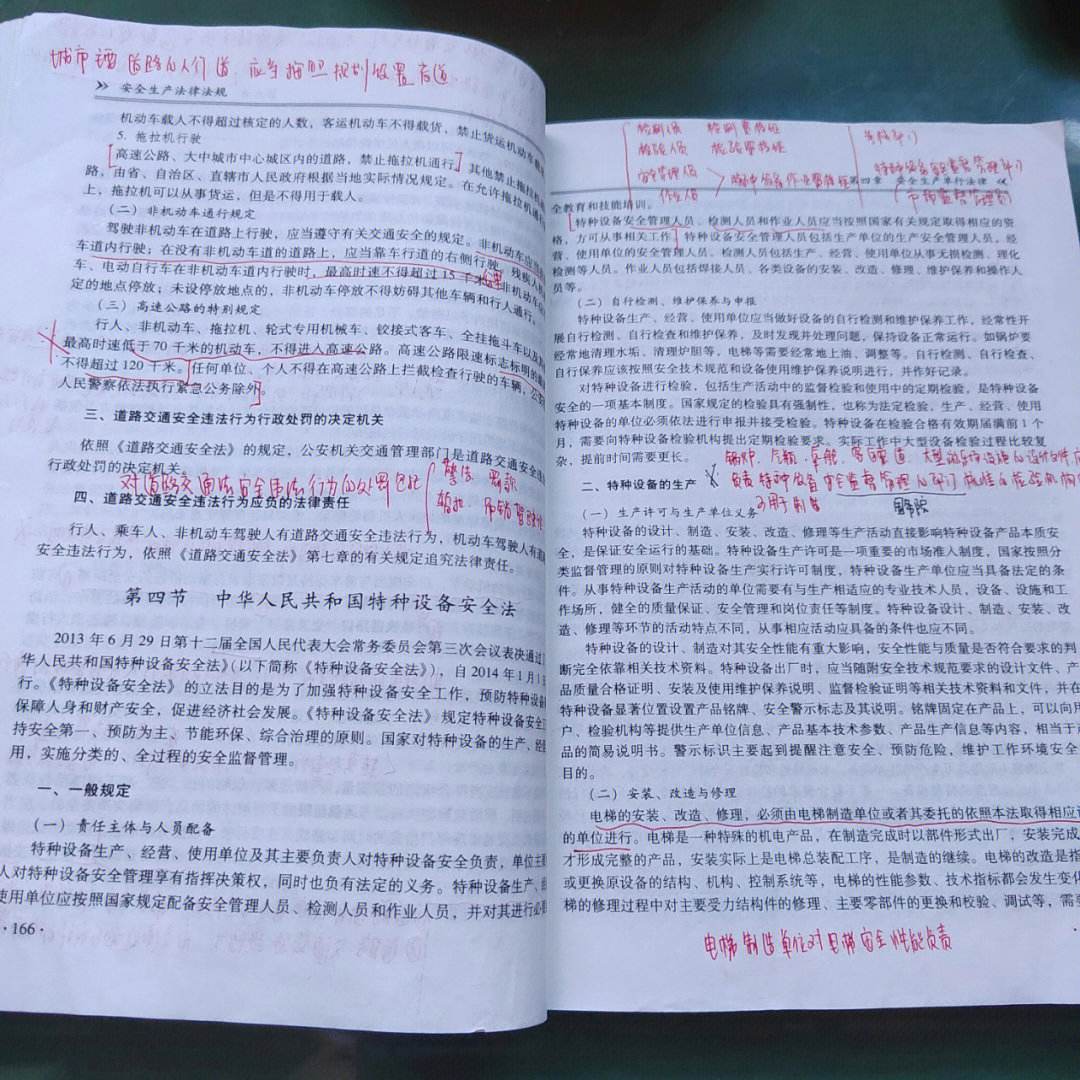 城市主要道路的人行道,应当按照规划设置盲道
安全生产法律法规
机动车载人不得超过核定的人数,客运机动车不得载货,禁止货运机动车载
5. 拖拉机行驶
高速公路、大中城市中心城区内的道路,禁止拖拉机通行。其他禁止拖拉机
路,由省、自治区、直辖市人民政府根据当地实际情况规定。在允许拖拉机通行
上,拖拉机可以从事货运,但是不得用于载人。
(二)非机动车通行规定
驾驶非机动车在道路上行驶,应当遵守有关交通安全的规定。非机动车应当在
车道内行驶;在没有非机动车道的道路上,应当靠车行道的右侧行驶。残疾人机
车、电动自行车在非机动车道内行驶时,最高时速不得超过 15 千米。非机动车应
定的地点停放;未设停放地点的,非机动车停放不得妨碍其他车辆和行人通行。
(三)高速公路的特别规定
行人、非机动车、拖拉机、轮式专用机械车、铰接式客车、全挂拖斗车以及其他
最高时速低于 70 千米的机动车,不得进入高速公路。高速公路限速标志标明的最高
不得超过 120 千米。任何单位、个人不得在高速公路上拦截检查行驶的车辆,公安
人民警察依法执行紧急公务除外。
三、道路交通安全违法行为行政处罚的决定机关
依照《道路交通安全法》的规定,公安机关交通管理部门是道路交通安全违法
行政处罚的决定机关。
对道路交通安全违法行为的处罚包括
警告 罚款
暂扣
四、道路交通安全违法行为应负的法律责任
行人、乘车人、非机动车驾驶人有道路交通安全违法行为,机动车驾驶人有道路
安全违法行为,依照《道路交通安全法》第七章的有关规定追究法律责任。
第四节 中华人民共和国特种设备安全法
2013 年 6 月 29 日第十二届全国人民代表大会常务委员会第三次会议表决通过
华人民共和国特种设备安全法》(以下简称《特种设备安全法》),自 2014 年 1 月 1
行。《特种设备安全法》的立法目的是为了加强特种设备安全工作,预防特种设备
保障人身和财产安全,促进经济社会发展。《特种设备安全法》规定特种设备安全工
持安全第一、预防为主、节能环保、综合治理的原则。国家对特种设备的生产、经
用,实施分类的、全过程的安全监督管理。
一、一般规定
(一)责任主体与人员配备
特种设备生产、经营、使用单位及其主要负责人对特种设备安全负责,单位主要
人对特种设备安全管理享有指挥决策权,同时也负有法定的义务。特种设备生产、经
使用单位应按照国家规定配备安全管理人员、检测人员和作业人员,并对其进行必要
·166·
检测人员 检测资格证
检验人员 检验资格证
安全管理员
作业人员
特种设备安全监督管理部门
第四章 安全生产单行法律
全教育和技能培训。
特种设备安全管理人员、检测人员和作业人员应当按照国家有关规定取得相应的资
格,方可从事相关工作。特种设备安全管理人员包括生产单位的生产安全管理人员,经
营、使用单位的安全管理人员。检测人员包括生产、经营、使用单位从事无损检测、理化
检测等人员。作业人员包括焊接人员、各类设备的安装、改造、修理、维护保养和操作人
员等。
(二)自行检测、维护保养与申报
特种设备生产、经营、使用单位应当做好设备的自行检测和维护保养工作,经常性开
展自行检测、自行检查和维护保养,及时发现并处理问题,保持设备正常运行。如锅炉要
经常地清理水垢、清理炉胆等,电梯等需要经常地上油、调整等。自行检测、自行检查、
自行保养应该按照安全技术规范和设备使用维护保养说明进行,并作好记录。
对特种设备进行检验,包括生产活动中的监督检验和使用中的定期检验,是特种设备
安全的一项基本制度。国家规定的检验具有强制性,也称为法定检验,生产、经营、使用
特种设备的单位必须依法进行申报并接受检验。特种设备在检验合格有效期届满前 1 个
月,需要向特种设备检验机构提出定期检验要求。实际工作中大型设备检验过程比较复
杂,提前时间需要更长。
二、特种设备的生产
负责特种设备安全监督管理的部门核准的检验机构
国务院
(一)生产许可与生产单位义务
特种设备的设计、制造、安装、改造、修理等生产活动直接影响特种设备产品本质安
全,是保证安全运行的基础。特种设备生产许可是一项重要的市场准入制度,国家按照分
类监督管理的原则对特种设备生产实行许可制度,特种设备生产单位应当具备法定的条
件。从事特种设备生产活动的单位需要有与生产相适应的专业技术人员,设备、设施和工
作场所,健全的质量保证、安全管理和岗位责任等制度。特种设备设计、制造、安装、改
造、修理等环节的活动特点不同,从事相应活动应具备的条件也应不同。
特种设备的设计、制造对其安全性能有重大影响,安全性能与质量是否符合要求的判
断完全依靠相关技术资料。特种设备出厂时,应当随附安全技术规范要求的设计文件、产
品质量合格证明、安装及使用维护保养说明、监督检验证明等相关技术资料和文件,并在
特种设备显著位置设置产品铭牌、安全警示标志及其说明。铭牌固定在产品上,可以向用
户、检验机构等提供生产单位信息、产品基本技术参数、产品生产信息等内容,相当于产
品的简易说明书。警示标识主要起到提醒注意安全、预防危险、维护工作环境安全
目的。
(二)安装、改造与修理
电梯的安装、改造、修理,必须由电梯制造单位或者其委托的依照本法取得相应许
的单位进行。电梯是一种特殊的机电产品,在制造完成时以部件形式出厂,安装完成
才形成完整的产品,安装实际上是电梯总装配工序,是制造的继续。电梯的改造是指
或更换原设备的结构、机构、控制系统等,电梯的性能参数、技术指标都会发生变化
梯的修理过程中对主要受力结构件的修理、主要零部件的更换和校验、调试等,需要
电梯制造单位对电梯安全性能负责